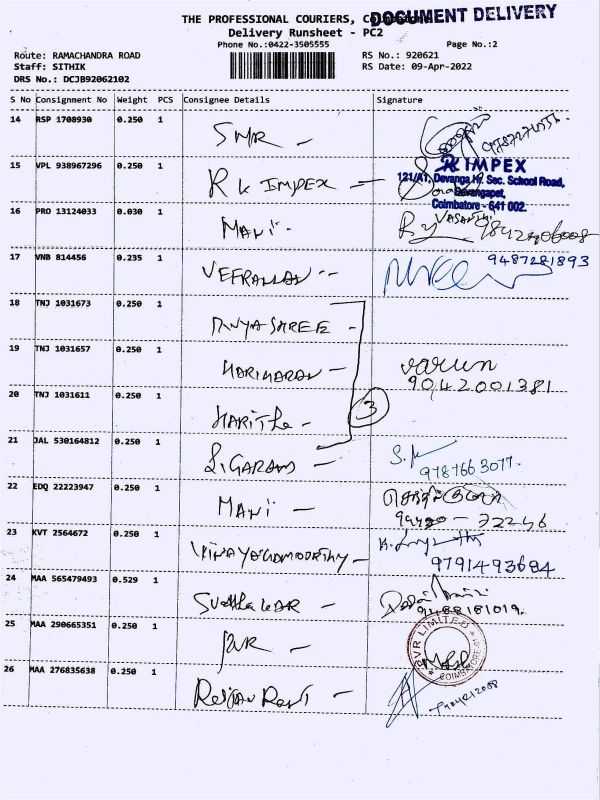 THE PROFESSIONAL COURIERS, Coimbatore
DOCUMENT DELIVERY
Delivery Runsheet - PC2
Phone No.:0422-3505555
Page No.:2
Route: RAMACHANDRA ROAD
RS No.: 920621
Staff: SITHIK
RS Date: 09-Apr-2022
DRS No.: DCJB92062102
S No Consignment No Weight PCS Consignee Details Signature
14 RSP 1700930 0.250 1 SMR -
15 VPL 938967296 0.250 1 RK IMPEX -
RK IMPEX
121/A1, Devanga Hr. Sec. School Road,
Devangapet,
Coimbatore - 641 002.
16 PRO 13124033 0.030 1 MANi -
VASANTHI
17 VNB 814456 0.235 1 9487281893
18 TNJ 1031673 0.250 1
19 TNJ 1031657 0.250 1 HARIHARAN - varun
9042001381
20 TNJ 1031611 0.250 1 HARITHA - 3
21 JAL 530164812 0.250 1 S.K
9787663077.
22 EDQ 22223947 0.250 1 MANi -
94420 - 72246
23 KVT 2564672 0.250 1 VINAYAGAMOORTHY -
9791493684
24 MAA 565479493 0.529 1 SUDHAKAR -
9488181019.
25 MAA 290665351 0.250 1 PVR -
PVR LIMITED
COIMBATORE
26 MAA 276835638 0.250 1 -